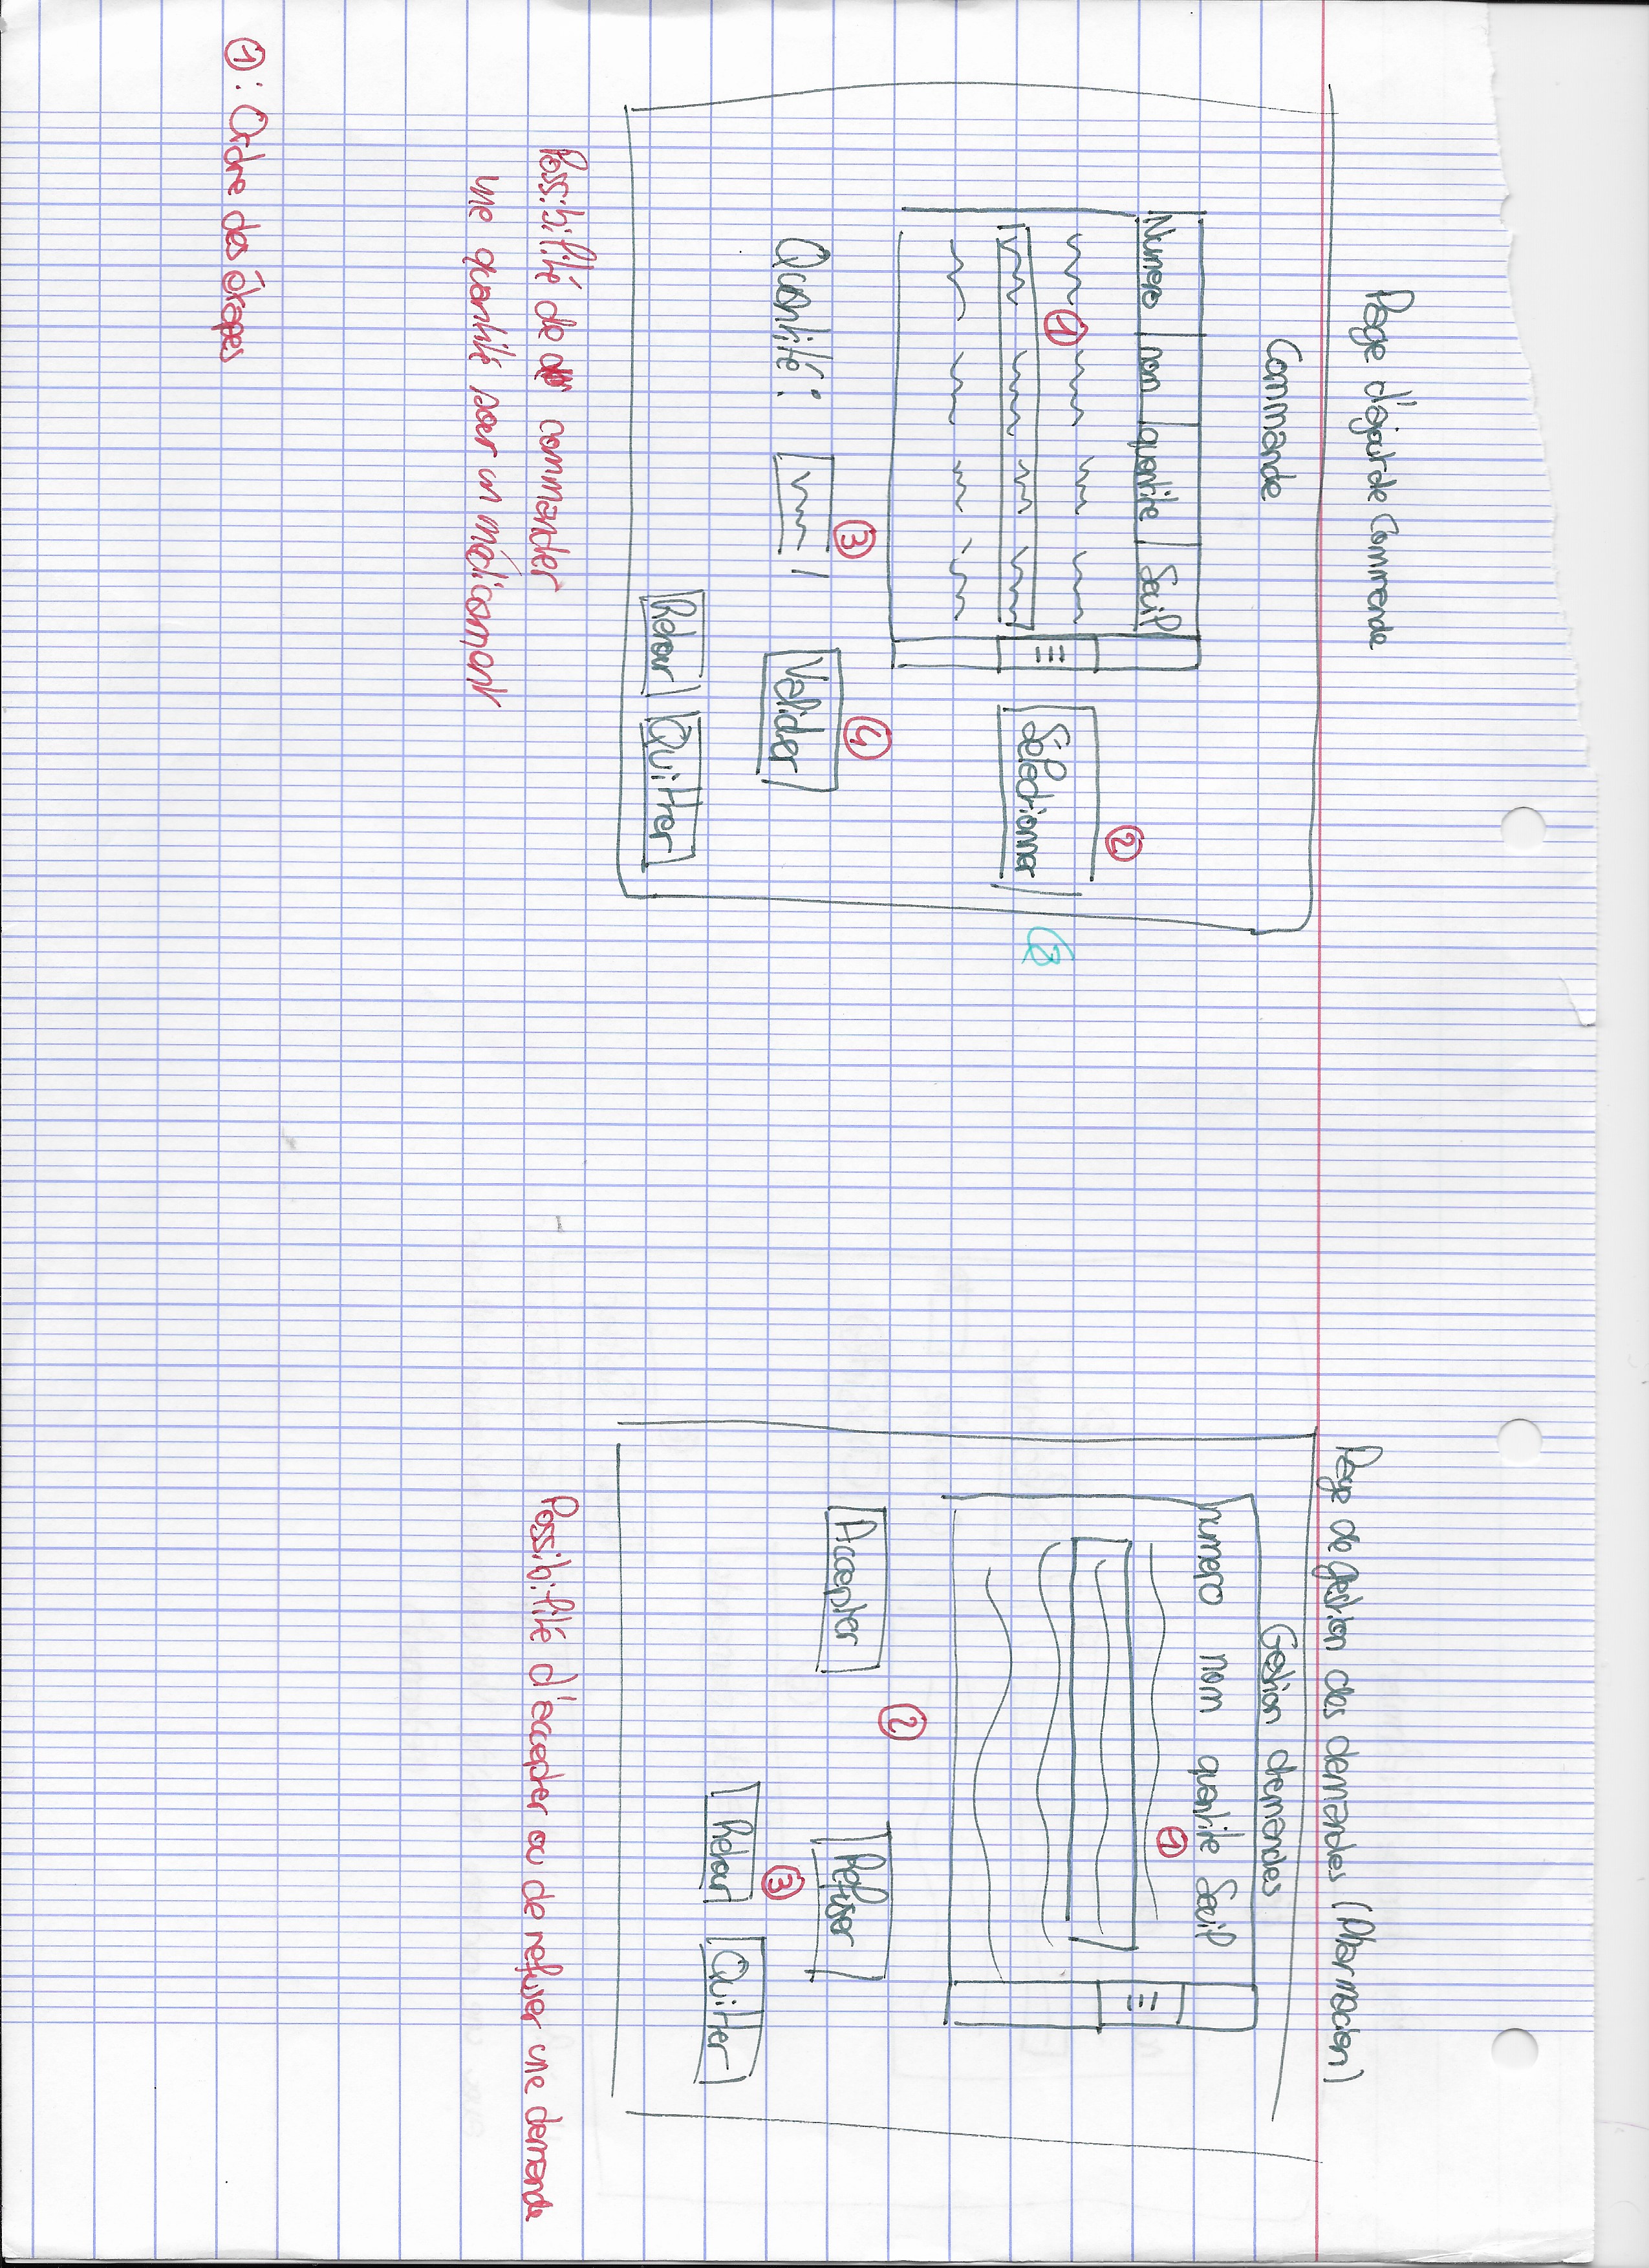 Page d'ajout de Commande
Commande
Numero nom quantite Seuil
①
②
Sélectionner
③
④
Quantité :
Valider
Retour Quitter
Possibilité de commander
une quantité pour un médicament
① : Ordre des étapes
Page de gestion des demandes (Pharmacien)
Gestion demandes
numero nom quantite Seuil
①
②
Accepter Refuser
③
Retour Quitter
Possibilité d'accepter ou de refuser une demande